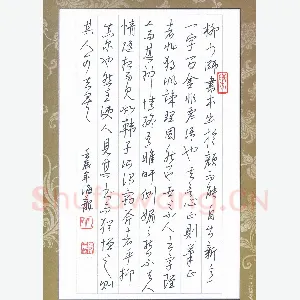 柳少师书本出于颜而能自出新意
一字百金非虚语也其言心正则笔正
者非独讽谏理固然也世之小人书字虽
工而其神情终有睢盱侧媚之态不知人
情随想而见如韩子所谓窃斧者乎抑
真尔也然至使人见其书而犹憎之则
其人可知矣
Shufawang.CN